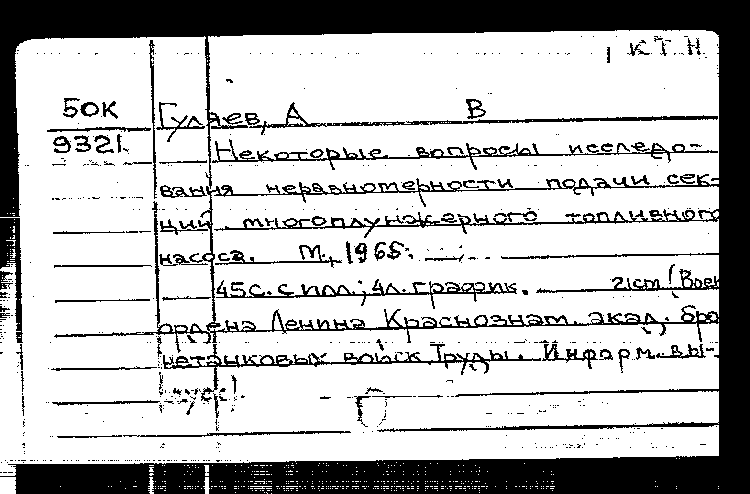 КТН
50К Гуляев, А В
9321 Некоторые вопросы исследо-
вания неравномерности подачи сек-
ций многоплунжерного топливного
насоса. М., 1965.
45с. с илл.; 4л. график. 21cm (Воен
ордена Ленина Краснознам. акад. бро
нетанковых войск. Труды. Информ. вы-
пуск).